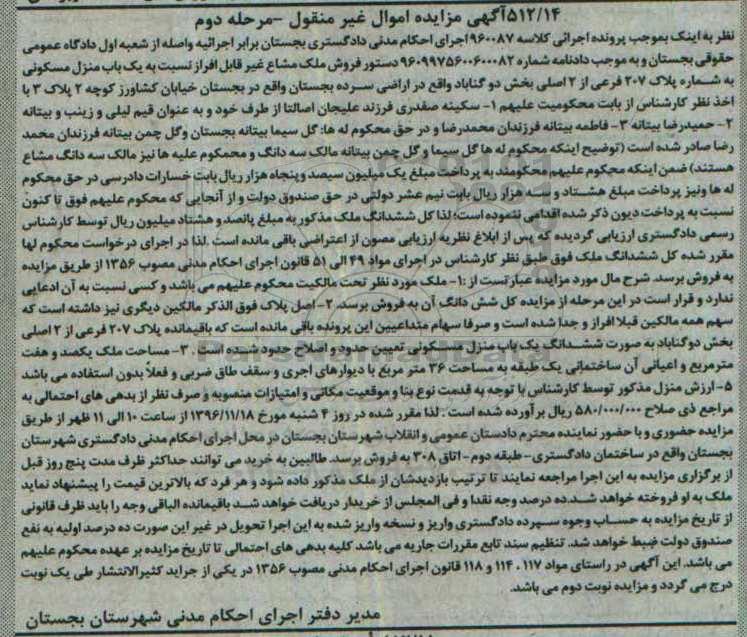 ۵۱۲/۱۴آگهی مزایده اموال غیر منقول -مرحله دوم
نظر به اینک بموجب پرونده اجرائی کلاسه ۹۶۰۰۸۷ اجرای احکام مدنی دادگستری بجستان برابر اجرائیه واصله از شعبه اول دادگاه عمومی
حقوقی بجستان و به موجب دادنامه شماره ۹۶۰۹۹۷۵۶۰۰۶۰۰۰۸۲ دستور فروش ملک مشاع غیر قابل افراز نسبت به یک باب منزل مسکونی
به شماره پلاک ۲۰۷ فرعی از ۲ اصلی بخش دو گناباد واقع در اراضی سرده بجستان واقع در بجستان خیابان کشاورز کوچه ۲ پلاک ۳ با
اخذ نظر کارشناس از بابت محکومیت علیهم ۱- سکینه صفدری فرزند علیجان اصالتا از طرف خود و به عنوان قیم لیلی و زینب و بیتانه
۲- حمیدرضا بیتانه ۳- فاطمه بیتانه فرزندان محمدرضا و در حق محکوم له ها: گل سیما بیتانه بجستان وگل چمن بیتانه فرزندان محمد
رضا صادر شده است (توضیح اینکه محکوم له ها گل سیما و گل چمن بیتانه مالک سه دانگ و محمکوم علیه ها نیز مالک سه دانگ مشاع
هستند) ضمن اینکه محکوم علیهم محکومند به پرداخت مبلغ یک میلیون سیصد و پنجاه هزار ریال بابت خسارات دادرسی در حق محکوم
له ها ونیز پرداخت مبلغ هشتاد و سه هزار ریال بابت نیم عشر دولتی در حق صندوق دولت و از آنجایی که محکوم علیهم فوق تا کنون
نسبت به پرداخت دیون ذکر شده اقدامی ننموده است؛ لذا کل ششدانگ ملک مذکور به مبلغ پانصد و هشتاد میلیون ریال توسط کارشناس
رسمی دادگستری ارزیابی گردیده که پس از ابلاغ نظریه ارزیابی مصون از اعتراضی باقی مانده است .لذا در اجرای درخواست محکوم لها
مقرر شده کل ششدانگ ملک فوق طبق نظر کارشناس در اجرای مواد ۴۹ الی ۵۱ قانون اجرای احکام مدنی مصوب ۱۳۵۶ از طریق مزایده
به فروش برسد. شرح مال مورد مزایده عبارتست از :۱- ملک مورد نظر تحت مالکیت محکوم علیهم می باشد و کسی نسبت به آن ادعایی
ندارد و قرار است در این مرحله از مزایده کل شش دانگ آن به فروش برسد. ۲- اصل پلاک فوق الذکر مالکین دیگری نیز داشته است که
سهم همه مالکین قبلا افراز و جدا شده است و صرفا سهام متداعیین این پرونده باقی مانده است که باقیمانده پلاک ۲۰۷ فرعی از ۲ اصلی
بخش دو گناباد به صورت ششدانگ یک باب منزل مسکونی تعیین حدود و اصلاح حدود شده است . ۳- مساحت ملک یکصد و هفت
مترمربع و اعیانی آن ساختمانی یک طبقه به مساحت ۳۶ متر مربع با دیوارهای اجری و سقف طاق ضربی و فعلاً بدون استفاده می باشد
۵- ارزش منزل مذکور توسط کارشناس با توجه به قدمت نوع بنا و موقعیت مکانی و امتیازات منصوبه و صرف نظر از بدهی های احتمالی به
مراجع ذی صلاح ۵۸۰/۰۰۰/۰۰۰ ریال برآورده شده است . لذا مقرر شده در روز ۴ شنبه مورخ ۱۳۹۶/۱۱/۱۸ از ساعت ۱۰ الی ۱۱ ظهر از طریق
مزایده حضوری و با حضور نماینده محترم دادستان عمومی و انقلاب شهرستان بجستان در محل اجرای احکام مدنی دادگستری شهرستان
بجستان واقع در ساختمان دادگستری- طبقه دوم- اتاق ۳۰۸ به فروش برسد. طالبین به خرید می توانند حداکثر ظرف مدت پنج روز قبل
از برگزاری مزایده به این اجرا مراجعه نمایند تا ترتیب بازدیدشان از ملک مذکور داده شود و هر فرد که بالاترین قیمت را پیشنهاد نماید
ملک به او فروخته خواهد شد.ده درصد وجه نقدا و فی المجلس از خریدار دریافت خواهد شد باقیمانده الباقی وجه را باید ظرف قانونی
از تاریخ مزایده به حساب وجوه سپرده دادگستری واریز و نسخه واریز شده به این اجرا تحویل در غیر این صورت ده درصد اولیه به نفع
صندوق دولت ضبط خواهد شد. تنظیم سند تابع مقررات جاریه می باشد کلیه بدهی های احتمالی تا تاریخ مزایده بر عهده محکوم علیهم
می باشد. این آگهی در راستای مواد ۱۱۷ ، ۱۱۴ و ۱۱۸ قانون اجرای احکام مدنی مصوب ۱۳۵۶ در یکی از جراید کثیرالانتشار طی یک نوبت
درج می گردد و مزایده نوبت دوم می باشد.
مدیر دفتر اجرای احکام مدنی شهرستان بجستان